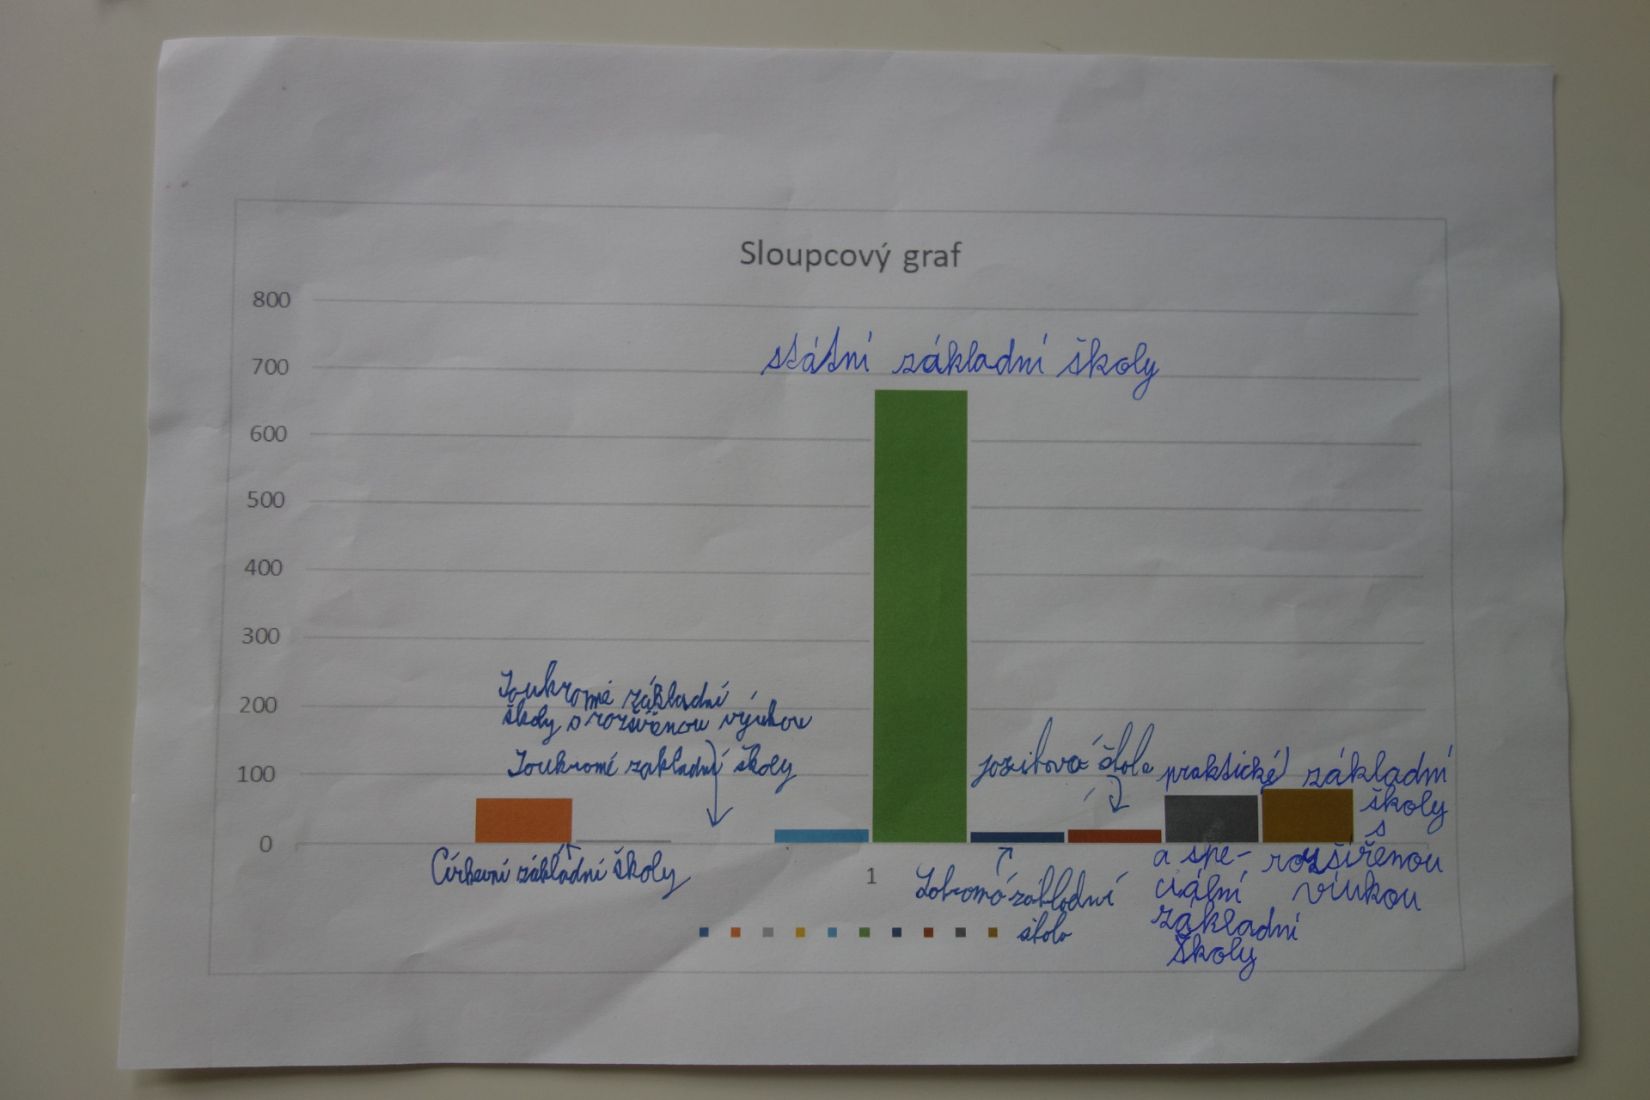 Sloupcový graf
800
700
600
500
400
300
200
100
0
státní základní školy
Soukromé základní
školy s rozšířenou výukou
Soukromé zakladní školy
Církevní základní školy
1
jazyková škola
základní
škola
praktické
a spe-
ciální
zakladní
školy
základní
školy
s
rozšiřenou
víukou